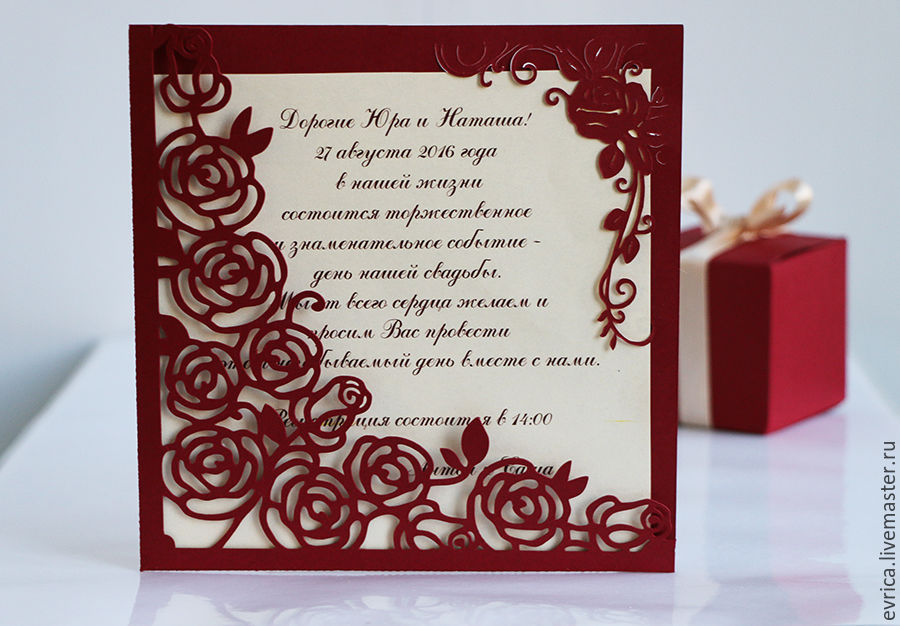 Дорогие Юра и Наташа!
27 августа 2016 года
в нашей жизни
состоится торжественное
и знаменательное событие -
день нашей свадьбы.
Мы от всего сердца желаем и
просим Вас провести
день вместе с нами.
Регистрация состоится в 14:00
Антон и Саша
evrica.livemaster.ru